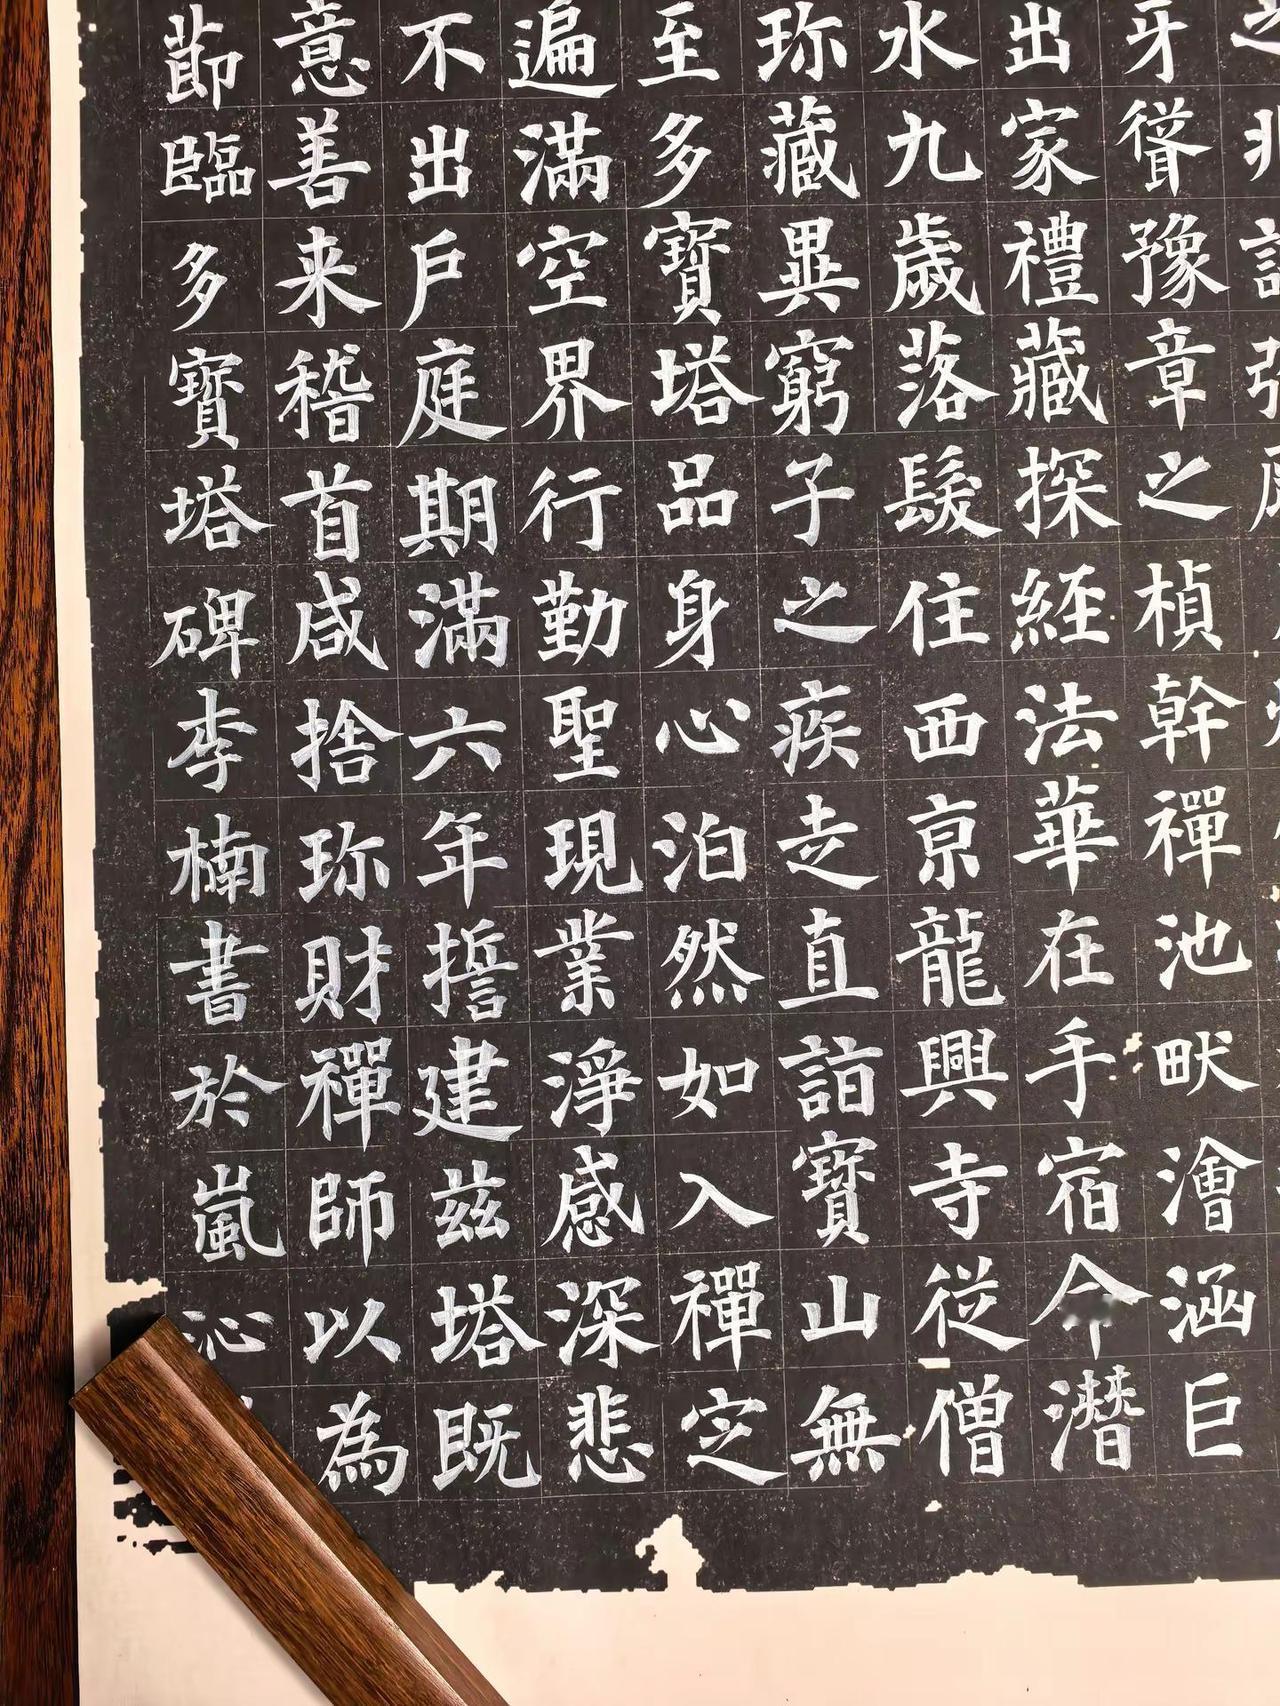 牙聳豫章之楨幹禪池畎澮涵巨
出家禮藏探經法華在手宿命潛
水九歲落髮住西京龍興寺從僧
珎藏異窮子之疾走直詣寶山無
至多寶塔品身心泊然如入禪定
遍滿空界行勤聖現業淨感深悲
不出戶庭期滿六年誓建茲塔既
意善来稽首咸捨珎財禪師以為
節臨多寶塔碑李楠書於嵐沁